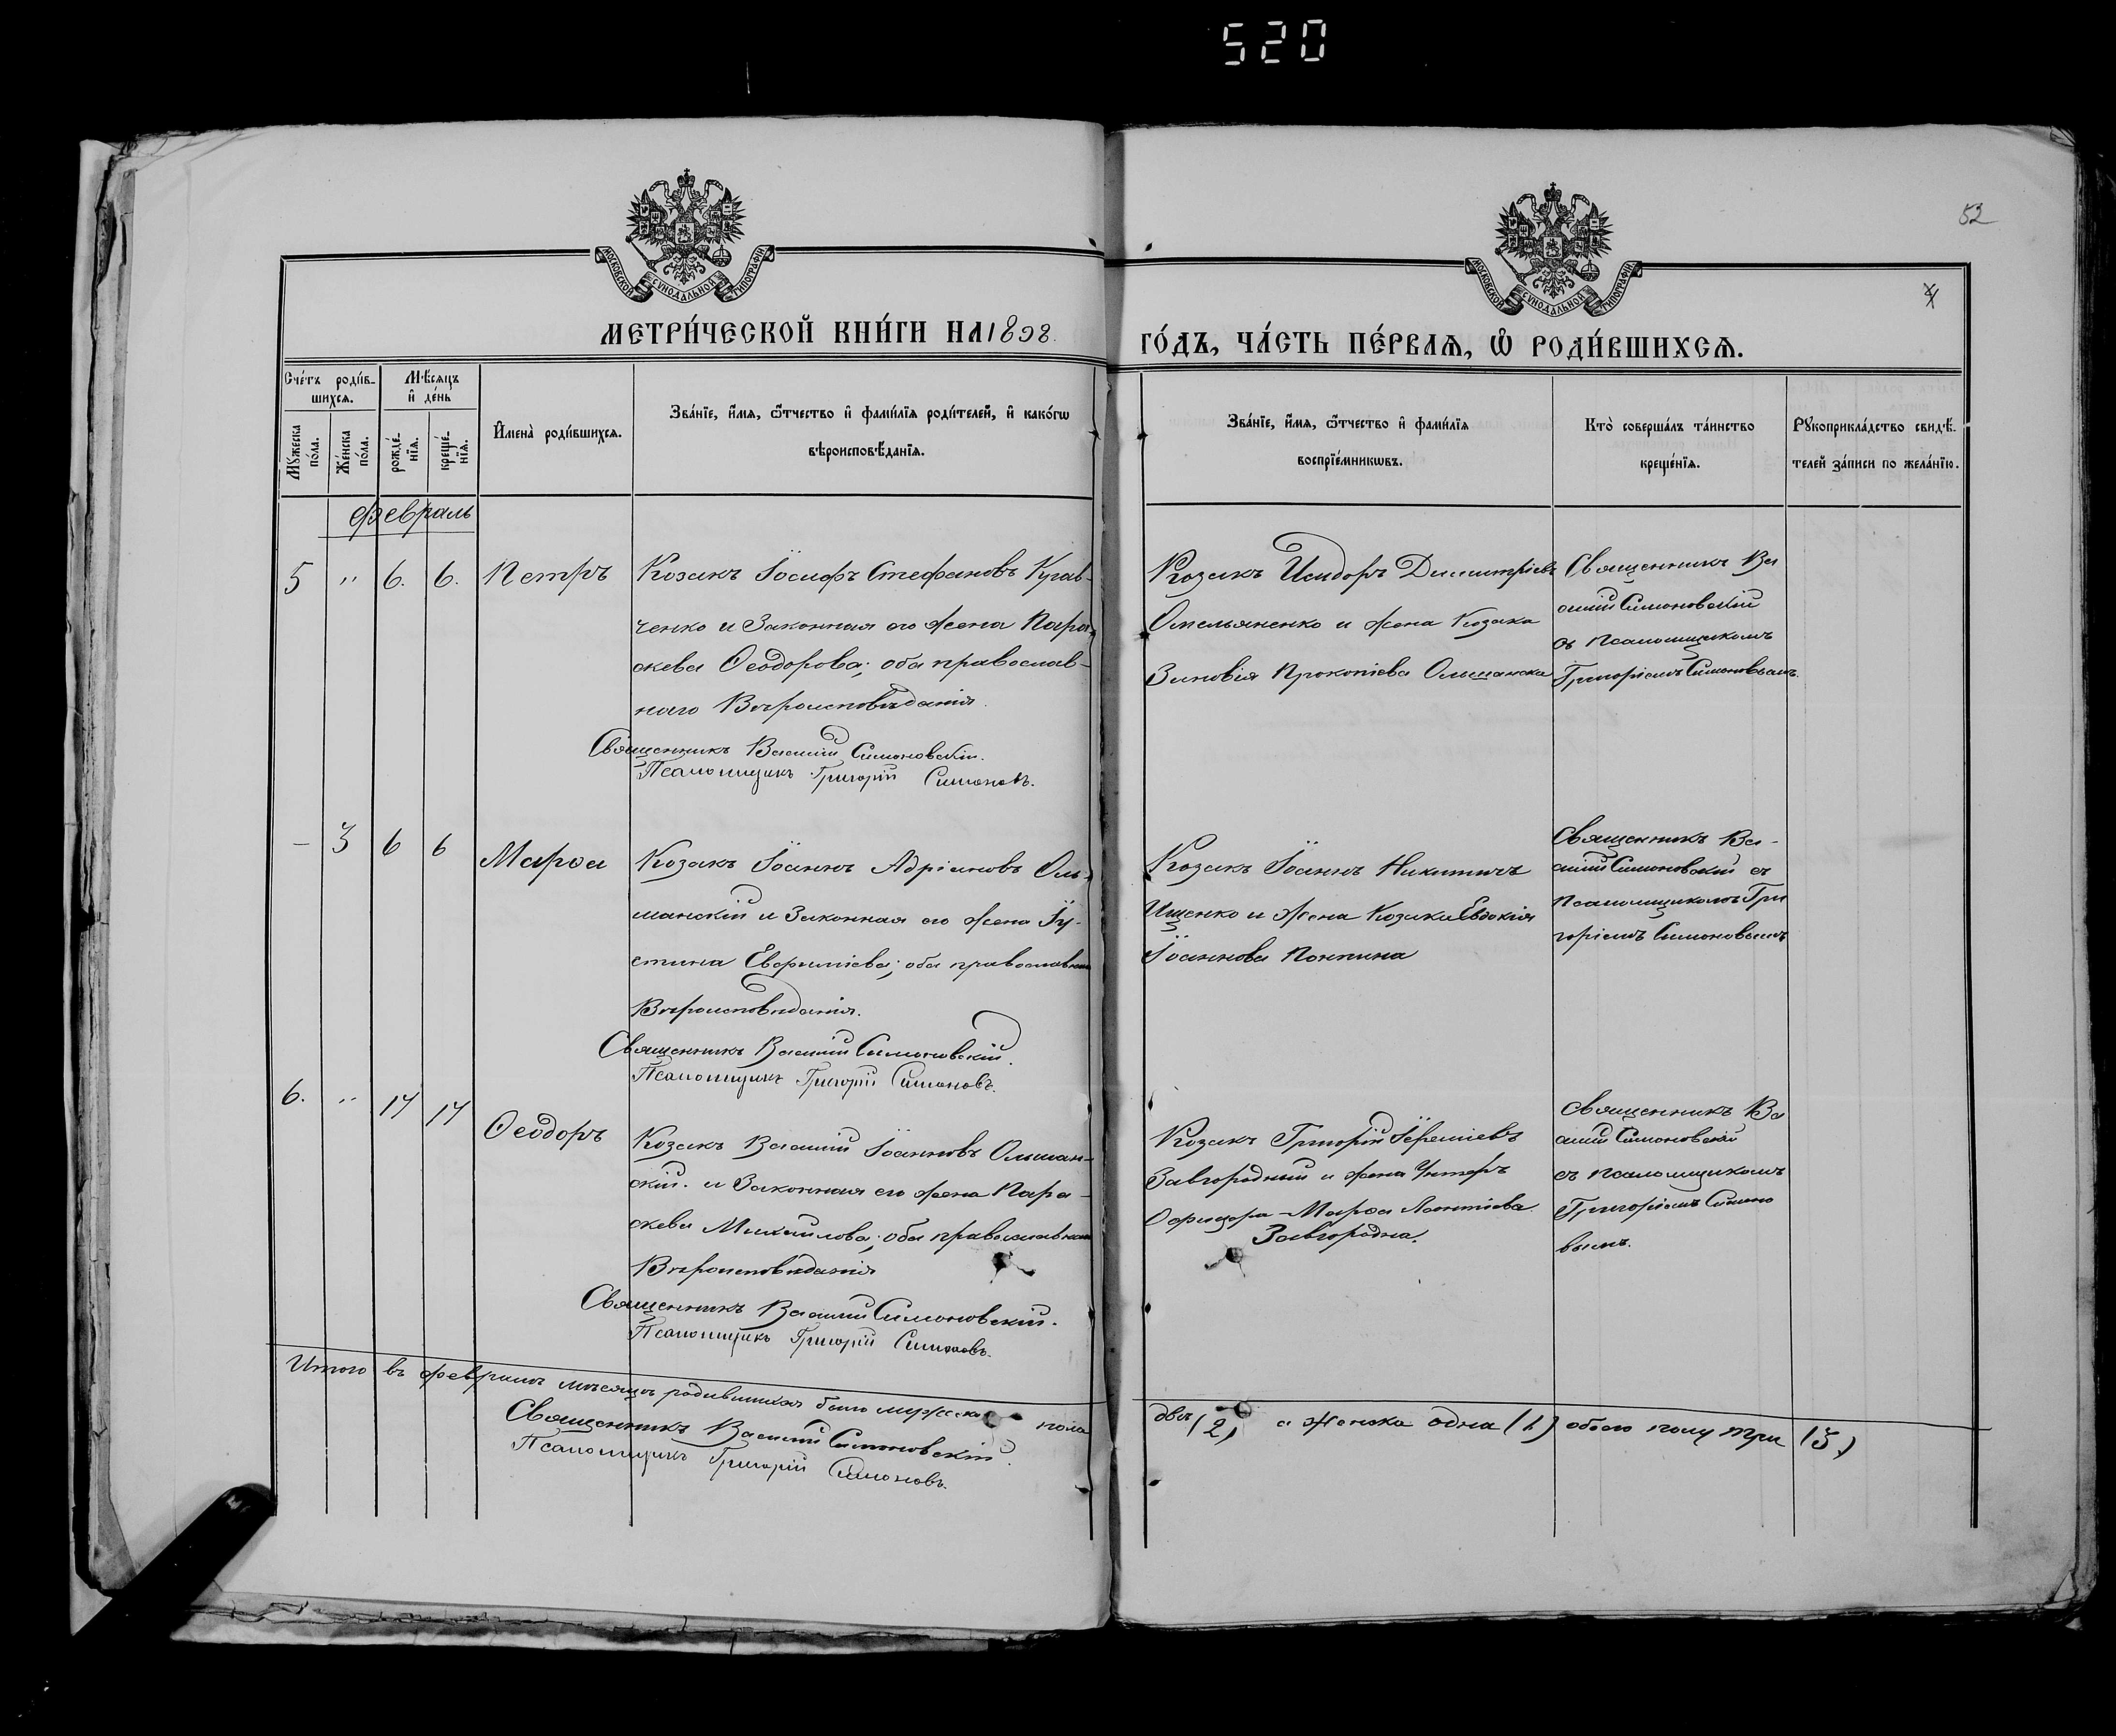 520
52
МОСКОВСКОЙ СУНОДАЛЬНОЙ ТИПОГРАФІИ
МОСКОВСКОЙ СУНОДАЛЬНОЙ ТИПОГРАФІИ
4
МЕТРИ́ЧЕСКОЙ КНИ́ГИ НА 1898.
ГО́ДЪ, ЧА́СТЬ ПЕ́РВАѦ, Ѡ҆ РОДИ́ВШИХСѦ.
Сче́тъ роди́в-
шихсѧ.
Мѣ́сѧцъ
и҆ де́нь
Мꙋ́жеска
по́ла.
Же́нска
по́ла.
рожде́-
нїѧ.
креще́-
нїѧ.
И҆мена̀ роди́вшихсѧ.
Зва́нїе, и҆́мѧ, ѻ҆́тчество и҆ фами́лїѧ роди́телей, и҆ како́гѡ
вѣроисповѣ́данїѧ.
Зва́нїе, и҆́мѧ, ѻ҆́тчество и҆ фами́лїѧ
воспрїе́мникѡвъ.
Кто̀ соверша́лъ та́инство
креще́нїѧ.
Рꙋкоприкла́дство свидѣ́-
телей за́писи по жела́нїю.
Февраль
5 " 6. 6. Петръ
Козакъ Іосифъ Стефановъ
ченко и законная его жена Пара
скева Ѳеодорова; оба православ-
наго Вѣроисповѣданія.
Священникъ Василій Симоновскій.
Псаломщикъ Григорій Симоновъ.
Козакъ Исидоръ Димитріевъ
Омельяненко и жена Козака
Зиновія Прокопіева Ольшанска
Священникъ Ва
силій Симоновскій
съ псаломщикомъ
Григоріемъ Симоновымъ.
- 3 6 6 Марѳа
Козакъ Іоаннъ Адріановъ Оль-
шанскій и Законная его жена Іу-
стина Евфиміева; оба православнаго
Вѣроисповѣданія.
Священникъ Василій Симоновскій.
Псаломщикъ Григорій Симоновъ.
Козакъ Іоаннъ Никитичъ
Ищенко и жена Козака Евдокія
Іоаннова
Священникъ Ва-
силій Симоновскій съ
псаломщикомъ Гри
горіемъ Симоновымъ
6. " 14 14 Ѳеодоръ
Козакъ Василій Іоанновъ Ольшан-
скій. и Законная его жена Пара-
скева Михаилова; оба православнаго
Вѣроисповѣданія
Священникъ Василій Симоновскій.
Псаломщикъ Григорій Симоновъ.
Козакъ Григорій Іереміевъ
Завгородный и жена Унтеръ
Офицера - Марѳа Леонтіева
Завгородна.
Священникъ Ва
силій Симоновскій
съ псаломщикомъ
Григоріемъ Симоно
вымъ.
Итого въ февралѣ мѣсяцѣ родившихся было мужеска пола
два (2) а женска одна (1) обоего полу три (3)
Священникъ Василій Симоновскій.
Псаломщикъ Григорій Симоновъ.